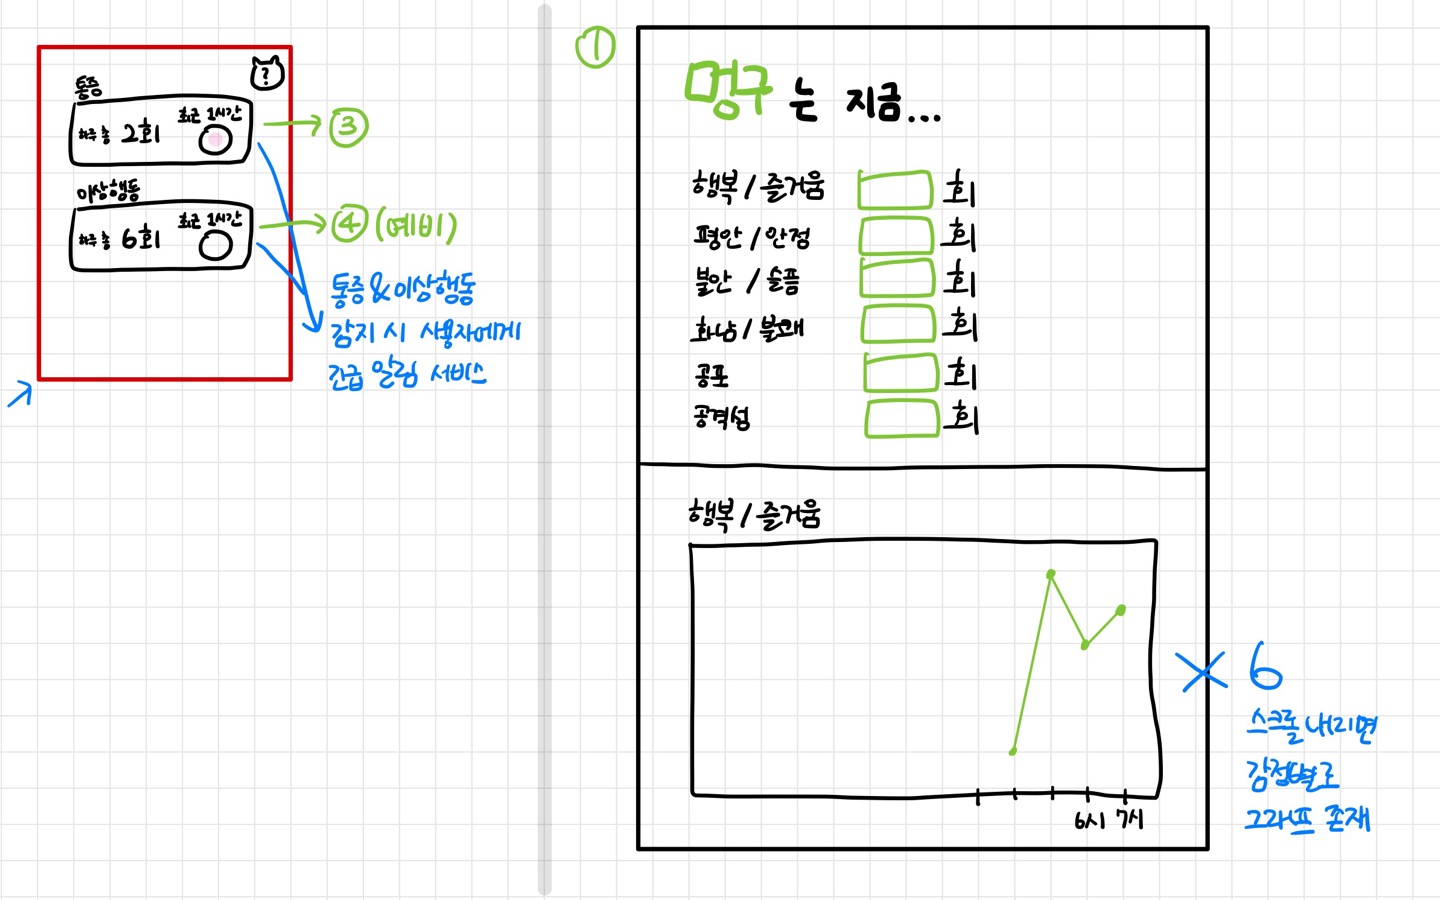 ?
통증
하루 총 2회
최근 1시간
③
이상행동
하루 총 6회
최근 1시간
④ (예비)
통증 & 이상행동
감지 시 사용자에게
긴급 알림 서비스
①
멍구 는 지금...
행복 / 즐거움 회
평안 / 안정 회
불안 / 슬픔 회
화남 / 불쾌 회
공포 회
공격성 회
행복 / 즐거움
6시 7시
× 6
스크롤 내리면
감정별로
그래프 존재